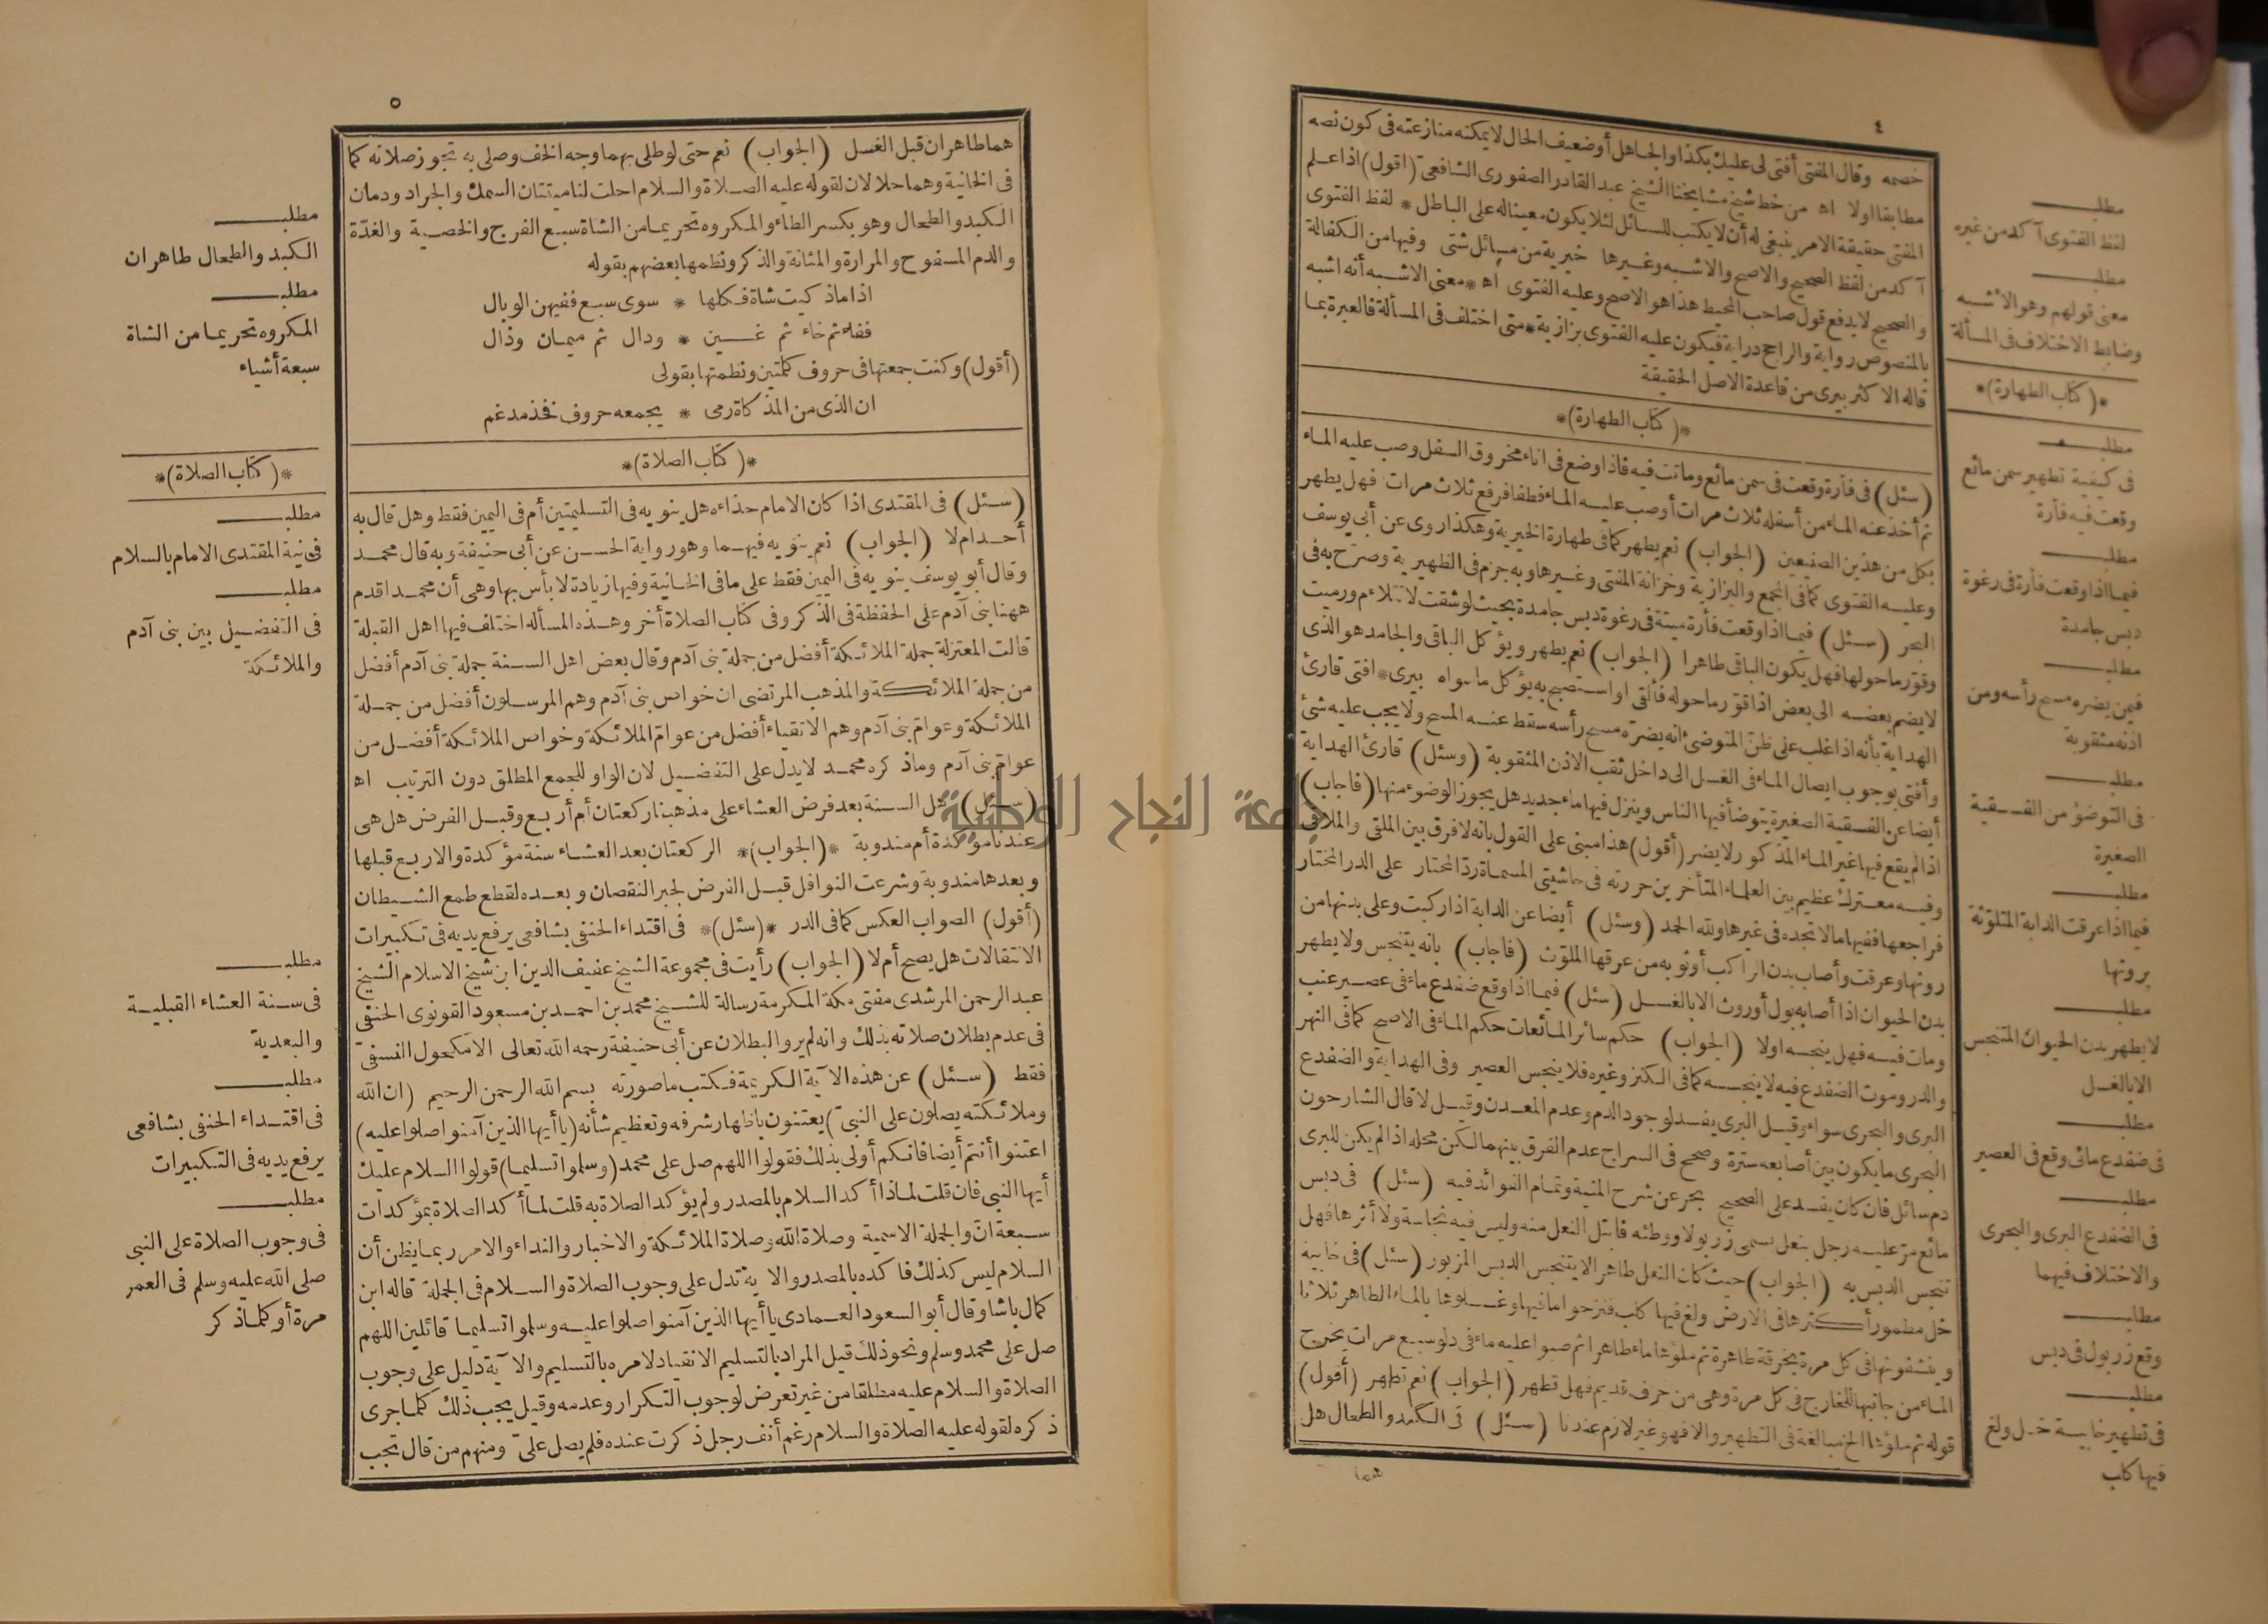 ٤
خصمه وقال المفتى أفتى لى عليك بكذا والجاهل أو ضعيف الحال لا يمكنه منازعته فى كون نصه
مطابقا اولا اه من خط شيخ مشايخنا الشيخ عبد القادر الصفورى الشافعى (اقول) اذا علم
المفتى حقيقة الامر ينبغى له أن لا يكتب للسائل لئلا يكون معيناله على الباطل * لفظ الفتوى
آكد من لفظ الصحيح والاصح والاشبه وغيرها خيرية من مسائل شتى وفيها من الكفالة
والصحيح لا يدفع قول صاحب المحيط هذا هو الاصح وعليه الفتوى اه * معنى الاشبه أنه اشبه
بالمنصوص رواية والراجح دراية فيكون عليه الفتوى بزازية * متى اختلف فى المسألة فالعبرة بما
قاله الاكثر بيرى من قاعدة الاصل الحقيقة
*(كتاب الطهارة)*
(سئل) فى فأرة وقعت فى سمن مائع وماتت فيه فاذا وضع فى اناء مخروق السفل وصب عليه الماء
ثم أخذ عنه الماء من أسفله ثلاث مرات أو صب عليه الماء فطفا فرفع ثلاث مرات فهل يطهر
بكل من هذين الصنيعين (الجواب) نعم يطهر كما فى طهارة الخيرية وهكذا روى عن أبى يوسف
وعليه الفتوى كما فى المجمع والبزازية وخزانة المفتى وغيرها وبه جزم فى الظهيرية وصرّح به فى
البحر (سئل) فيما اذا وقعت فأرة ميتة فى رغوة دبس جامدة بحيث لو شقت لا تتلاءم ورميت
وقوّر ما حولها فهل يكون الباقى طاهرا (الجواب) نعم يطهر ويؤكل الباقى والجامد هو الذى
لا يضم بعضه الى بعض اذا قوّر ما حوله فألقى او استصبح به يؤكل ما سواه بيرى * افتى قارئ
الهداية بأنه اذا غلب على ظنّ المتوضئ انه يضرّه مسح رأسه سقط عنه المسح ولا يجب عليه شئ
وأفتى بوجوب ايصال الماء فى الغسل الى داخل ثقب الاذن المثقوبة (وسئل) قارئ الهداية
أيضا عن الفسقية الصغيرة يتوضأ فيها الناس وينزل فيها ماء جديد هل يجوز الوضوء منها (فاجاب)
اذا لم يقع فيها غير الماء المذكور لا يضر (أقول) هذا مبنى على القول بانه لا فرق بين الملقى والملاقى
وفيه معترك عظيم بين العلماء المتأخرين حررته فى حاشيتى المسماة ردّ المحتار على الدر المختار
فراجعها ففيها ما لا تجده فى غيرها ولله الحمد (وسئل) أيضا عن الدابة اذا ركبت وعلى بدنها من
روثها وعرقت وأصاب بدن الراكب أو ثوبه من عرقها الملوّث (فاجاب) بانه يتنجس ولا يطهر
بدن الحيوان اذا أصابه بول أو روث الا بالغسل (سئل) فيما اذا وقع ضفدع ماء فى عصير عنب
ومات فيه فهل ينجسه اولا (الجواب) حكم سائر المائعات حكم الماء فى الاصح كما فى النهر
والدر وموت الضفدع فيه لا ينجسه كما فى الكنز وغيره فلا ينجس العصير وفى الهداية والضفدع
البرى والبحرى سواء وقيل البرى يفسد لوجود الدم وعدم المعدن وقيل لا قال الشارحون
البحرى ما يكون بين أصابعه سترة وصحح فى السراج عدم الفرق بينهما لكن محله اذا لم يكن للبرى
دم سائل فان كان يفسد على الصحيح بحر عن شرح المنية وتمام الفوائد فيه (سئل) فى دبس
مائع مرّ عليه رجل بنعل يسمى زربولا ووطئه فابتل النعل منه وليس فيه نجاسة ولا أثرها فهل
تنجس الدبس به (الجواب) حيث كان النعل طاهرا لا يتنجس الدبس المزبور (سئل) فى خابية
خل مطمور أكثرها فى الارض ولغ فيها كلب فنزحوا ما فيها وغسلوها بالماء الطاهر ثلاثا
وينشفونها فى كل مرة بخرقة طاهرة ثم ملؤها ماء طاهرا ثم صبوا عليه ماء فى دلو سبع مرات يخرج
الماء من جانبها للخارج فى كل مرة وهى من خزف قديم فهل تطهر (الجواب) نعم تطهر (أقول)
قوله ثم ملؤها الخ مبالغة فى التطهير والا فهو غير لازم عندنا (سئل) فى الكبد والطحال هل
هما
مطلب
لفظ الفتوى آكد من غيره
مطلب
معنى قولهم وهو الاشبه
وضابط الاختلاف فى المسألة
*(كتاب الطهارة)*
مطلب
فى كيفية تطهير سمن مائع
وقعت فيه فأرة
مطلب
فيما اذا وقعت فأرة فى رغوة
دبس جامدة
مطلب
فيمن يضره مسح رأسه ومن
اذنه مثقوبة
مطلب
فى التوضؤ من الفسقية
الصغيرة
مطلب
فيما اذا عرقت الدابة المتلوّثة
بروثها
مطلب
لا يطهر بدن الحيوان المتنجس
الا بالغسل
مطلب
فى ضفدع مائى وقع فى العصير
مطلب
فى الضفدع البرى والبحرى
والاختلاف فيهما
مطلب
وقع زربول فى دبس
مطلب
فى تطهير خابية خل ولغ
فيها كلب
٥
هما طاهران قبل الغسل (الجواب) نعم حتى لو طلى بهما وجه الخف وصلى به تجوز صلاته كما
فى الخانية وهما حلالان لقوله عليه الصلاة والسلام احلت لنا ميتتان السمك والجراد ودمان
الكبد والطحال وهو بكسر الطاء والمكروه تحريما من الشاة سبع الفرج والخصية والغدّة
والدم المسفوح والمرارة والمثانة والذكر ونظمها بعضهم بقوله
اذا ما ذكيت شاة فكلها * سوى سبع ففيهن الوبال
ففاء ثم خاء ثم غين * ودال ثم ميمان وذال
(أقول) وكنت جمعتها فى حروف كلمتين ونظمتها بقولى
ان الذى من المذكاة رمى * يجمعه حروف فخذ مدغم
*(كتاب الصلاة)*
(سئل) فى المقتدى اذا كان الامام حذاءه هل ينويه فى التسليمتين أم فى اليمين فقط وهل قال به
أحد ام لا (الجواب) نعم ينويه فيهما وهو رواية الحسن عن أبى حنيفة وبه قال محمد
وقال أبو يوسف ينويه فى اليمين فقط على ما فى الخانية وفيها زيادة لا بأس بها وهى أن محمدا قدم
ههنا بنى آدم على الحفظة فى الذكر وفى كتاب الصلاة أخر وهذه المسألة اختلف فيها اهل القبلة
قالت المعتزلة جملة الملائكة أفضل من جملة بنى آدم وقال بعض اهل السنة جملة بنى آدم أفضل
من جملة الملائكة والمذهب المرتضى ان خواص بنى آدم وهم المرسلون أفضل من جملة
الملائكة وعوامّ بنى آدم وهم الاتقياء أفضل من عوامّ الملائكة وخواص الملائكة أفضل من
عوامّ بنى آدم وما ذكره محمد لا يدل على التفضيل لان الواو للجمع المطلق دون الترتيب اه
(سئل) هل السنة بعد فرض العشاء على مذهبنا ركعتان أم أربع وقبل الفرض هل هى
عندنا مؤكدة أم مندوبة *(الجواب)* الركعتان بعد العشاء سنة مؤكدة والاربع قبلها
وبعدها مندوبة وشرعت النوافل قبل الفرض لجبر النقصان وبعده لقطع طمع الشيطان
(أقول) الصواب العكس كما فى الدر *(سئل)* فى اقتداء الحنفى بشافعى يرفع يديه فى تكبيرات
الانتقالات هل يصح أم لا (الجواب) رأيت فى مجموعة الشيخ عفيف الدين ابن شيخ الاسلام الشيخ
عبد الرحمن المرشدى مفتى مكة المكرمة رسالة للشيخ محمد بن احمد بن مسعود القونوى الحنفى
فى عدم بطلان صلاته بذلك وانه لم يرو البطلان عن أبى حنيفة رحمه الله تعالى الا مكحول النسفىّ
فقط (سئل) عن هذه الآية الكريمة فكتب ما صورته بسم الله الرحمن الرحيم (ان الله
وملائكته يصلون على النبىّ) يعتنون باظهار شرفه وتعظيم شأنه (يا أيها الذين آمنوا صلوا عليه)
اعتنوا أنتم أيضا فانكم أولى بذلك فقولوا اللهم صل على محمد (وسلموا تسليما) قولوا السلام عليك
أيها النبى فان قلت لماذا أكد السلام بالمصدر ولم يؤكد الصلاة به قلت لما أكد الصلاة بمؤكدات
سبعة انّ والجملة الاسمية وصلاة الله وصلاة الملائكة والاخبار والنداء والامر ربما يظن أن
السلام ليس كذلك فاكده بالمصدر والآية تدل على وجوب الصلاة والسلام فى الجملة قاله ابن
كمال باشا وقال أبو السعود العمادى يا أيها الذين آمنوا صلوا عليه وسلموا تسليما قائلين اللهم
صل على محمد وسلم ونحو ذلك قيل المراد بالتسليم الانقياد لامره بالتسليم والآية دليل على وجوب
الصلاة والسلام عليه مطلقا من غير تعرض لوجوب التكرار وعدمه وقيل يجب ذلك كلما جرى
ذكره لقوله عليه الصلاة والسلام رغم أنف رجل ذكرت عنده فلم يصل علىّ ومنهم من قال تجب
مطلب
الكبد والطحال طاهران
مطلب
المكروه تحريما من الشاة
سبعة أشياء
*(كتاب الصلاة)*
مطلب
فى نية المقتدى الامام بالسلام
مطلب
فى التفضيل بين بنى آدم
والملائكة
مطلب
فى سنة العشاء القبلية
والبعدية
مطلب
فى اقتداء الحنفى بشافعى
يرفع يديه فى التكبيرات
مطلب
فى وجوب الصلاة على النبى
صلى الله عليه وسلم فى العمر
مرة أو كلما ذكر
جامعة النجاح الوطنية